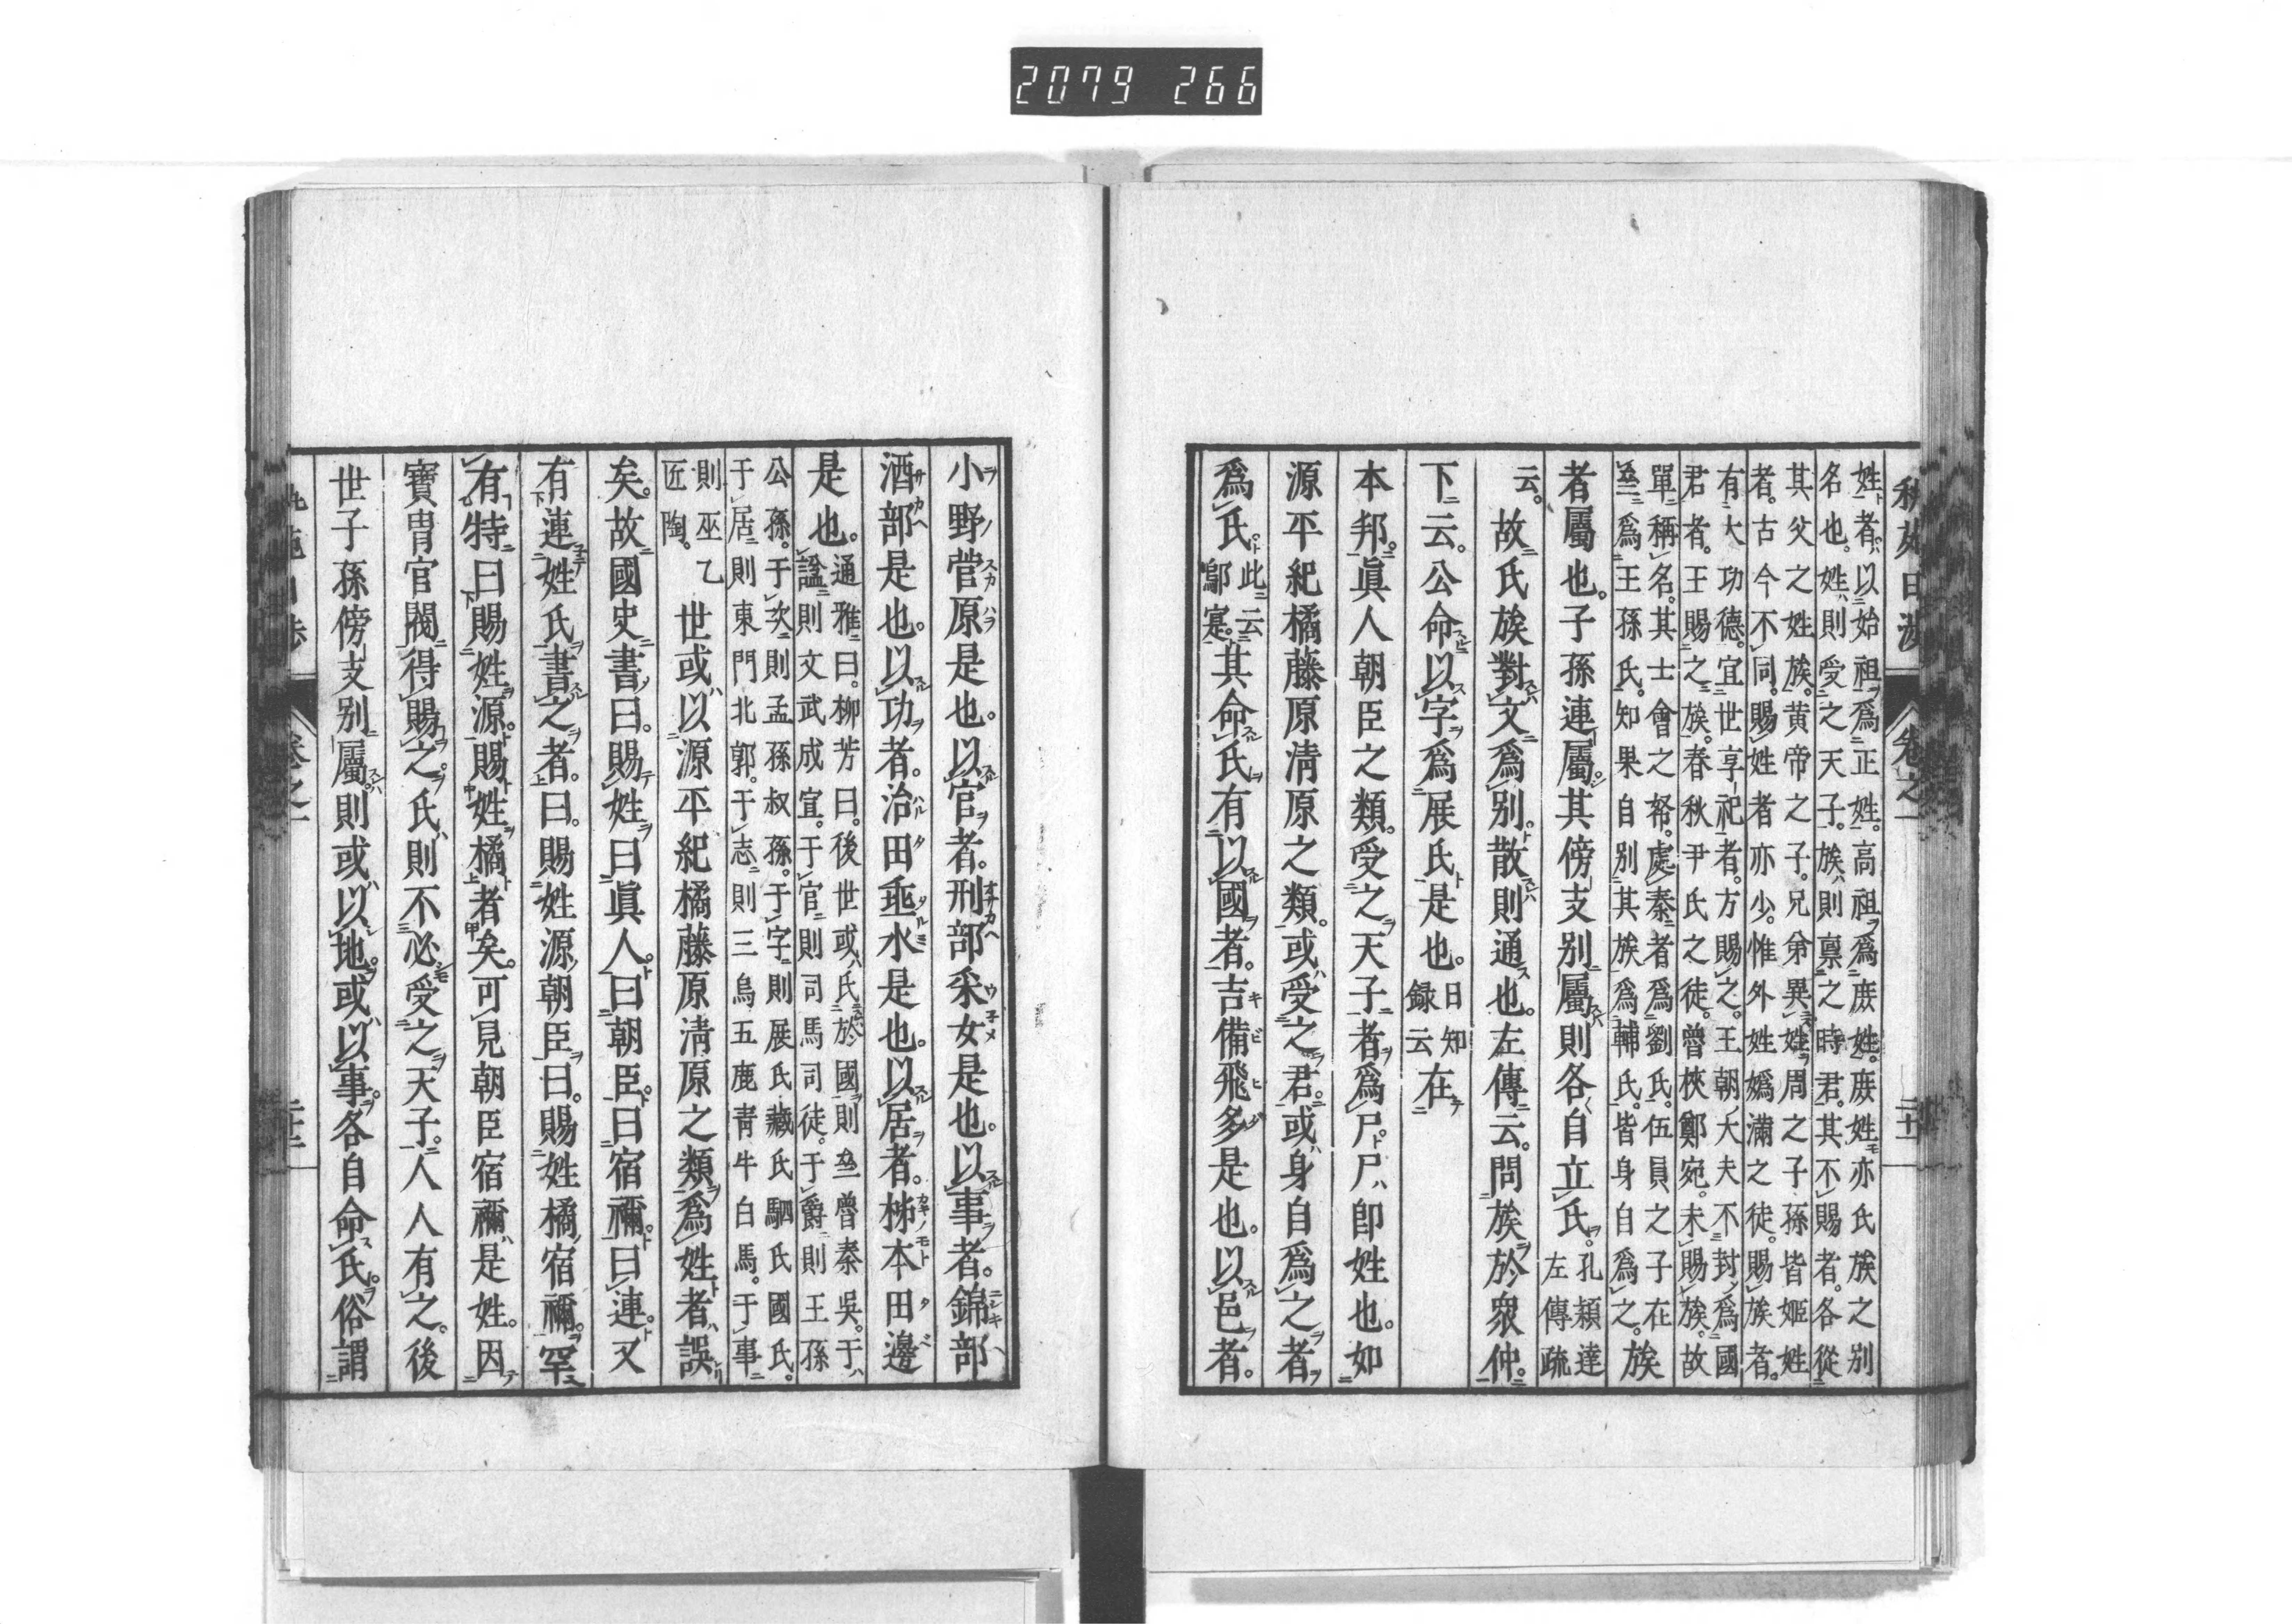 2079 266
秇苑日渉 卷之一
姓者。以始祖爲正姓。高祖爲庻姓。庻姓亦氏族之別
名也。姓則受之天子。族則禀之時君。其不賜者。各從
其父之姓族。黄帝之子。兄弟異姓。周之子孫皆姬姓
者。古今不同。賜姓者亦少。惟外姓嬀滿之徒。賜族者。
有大功德。宜世享祀者。方賜之。王朝大夫不封爲國
君者。王賜之族。春秋尹氏之徒。曾挾鄭宛。未賜族。故
單稱名。其士會之帑。處秦者爲劉氏。伍員之子在
亝爲王孫氏。知果自別其族爲輔氏。皆身自爲之。族
者屬也。子孫連屬其傍支別屬則各自立氏。孔頴達左傳疏
云。故氏族對文爲別。散則通也。左傳云。問族於衆仲。
下云。公命以字爲展氏是也。日知録云在
本邦。眞人朝臣之類。受之天子者爲尸尸即姓也。如
源平紀橘藤原淸原之類。或受之君。或身自爲之者。
爲氏。此云鄔寔。其命氏有以國者。吉備飛多是也。以邑者。
小野菅原是也。以官者。刑部采女是也。以事者。錦部
酒部是也。以功者。治田埀水是也。以居者。柹本田邊
是也。通雅曰。柳芳曰。後世或氏於國則亝魯秦吳。于
諡則文武成宣。于官則司馬司徒。于爵則王孫
公孫。于次則孟孫叔孫。于字則展氏藏氏駟氏國氏。
于居則東門北郭。于志則三烏五鹿靑牛白馬。于事
則巫乙匠陶。世或以源平紀橘藤原淸原之類爲姓者誤
矣。故國史書曰。賜姓曰眞人。曰朝臣。曰宿禰。曰連。又
有連姓氏書之者。曰。賜姓源朝臣。曰。賜姓橘宿禰。罕
有特曰賜姓源。賜姓橘者矣。可見朝臣宿禰是姓。因
寶胄官閥得賜之。氏則不必受之天子。人人有之。後
世子孫傍支別屬則或以地。或以事。各自命氏。俗謂
卷之一